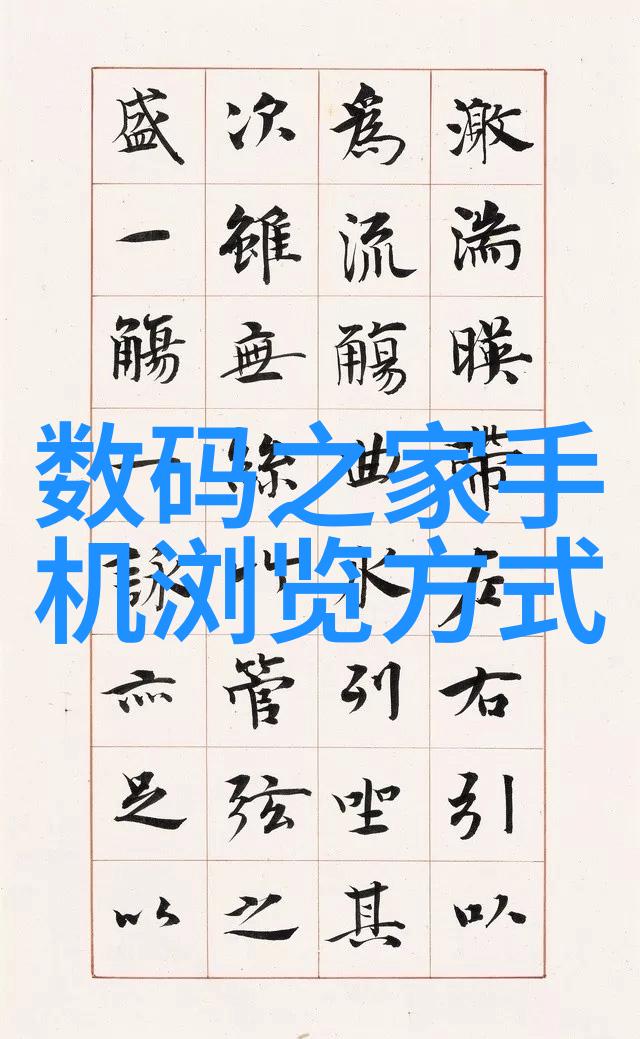 激湍暎帶左右引以
為流觴曲水列坐其
次雖無絲竹管弦之
盛一觴一詠亦足以
数码之家手
机浏览方式